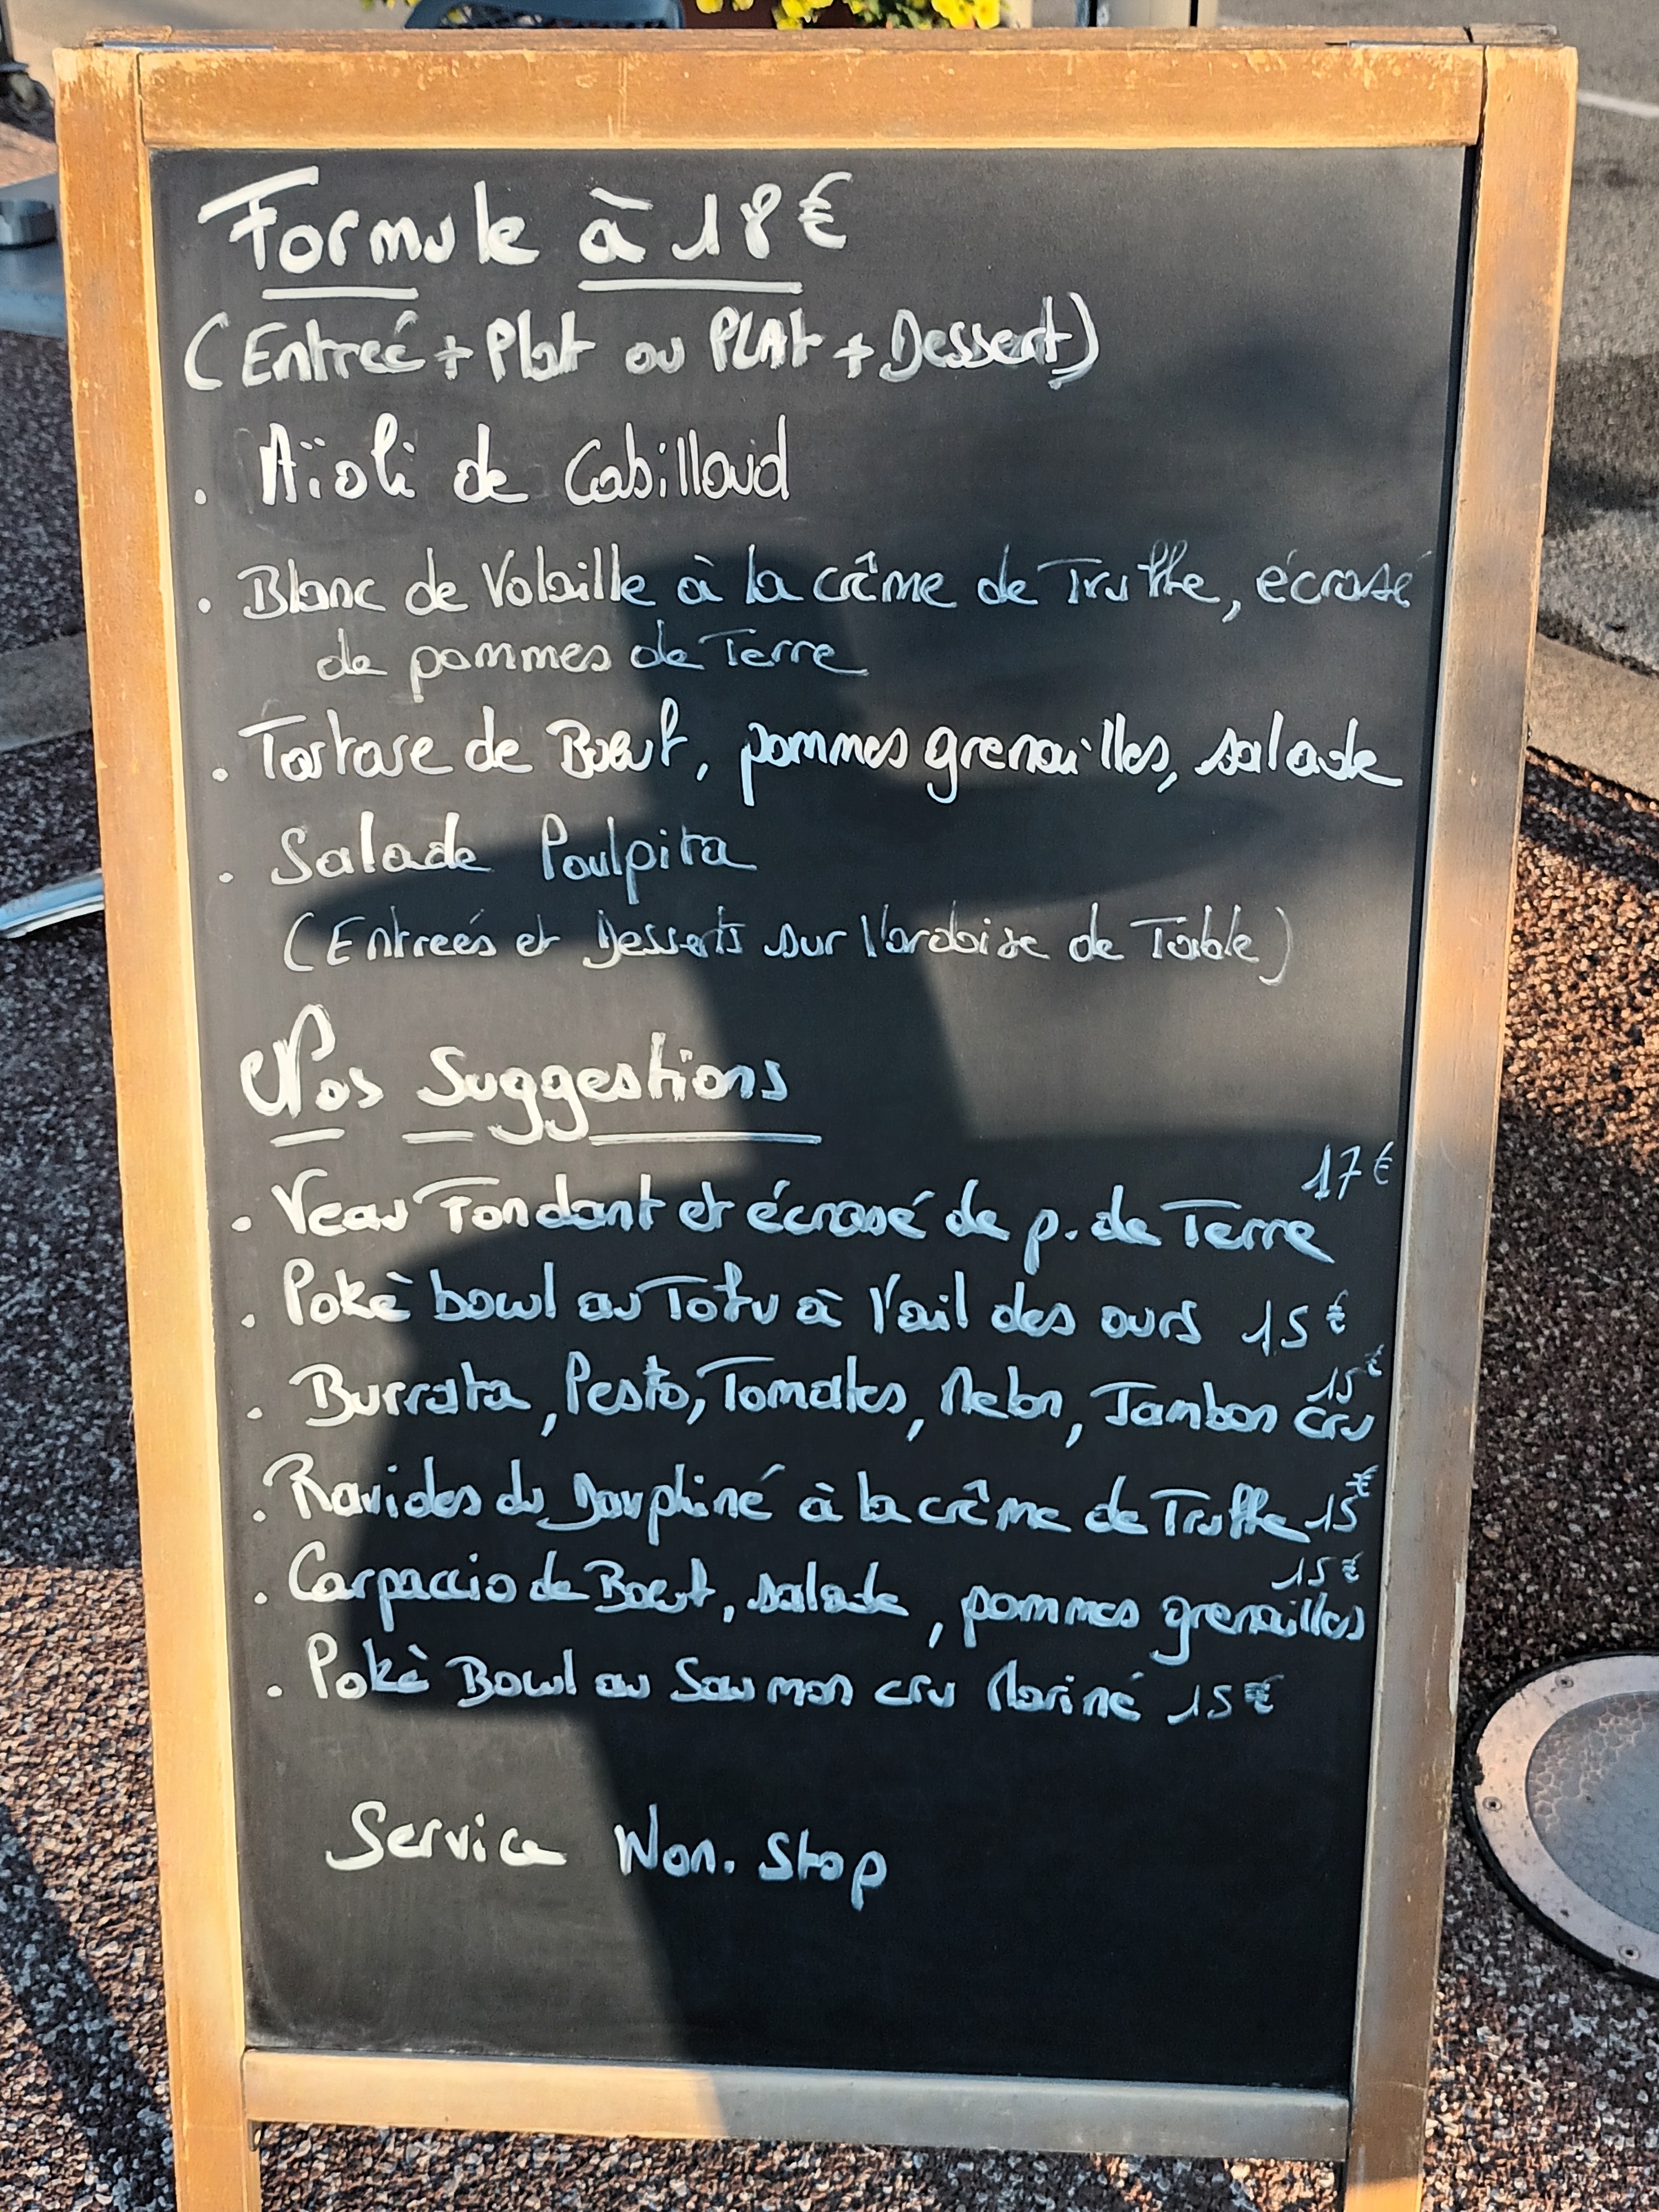 Formule à 18€
(Entreé + Plat ou PLAt + Dessert)
. Aïoli de Cabillaud
. Blanc de Volaille à la crême de Truffe, écrasé
de pommes de Terre
. Tartare de Boeuf, pommes grenailles, salade
. Salade Poulpita
(Entreés et Desserts sur l'ardoise de Table)
Nos Suggestions
17€
. Veau Fondant et écrasé de p. de Terre
. Pokè bowl au Tofu à l'ail des ours 15€
15€
. Burrata, Pesto, Tomates, Melon, Jambon cru
. Ravioles du Dauphiné à la crême de Truffe 15€
15€
. Carpaccio de Boeuf, salade, pommes grenailles
. Pokè Bowl au Saumon cru Mariné 15€
Service Non. Stop